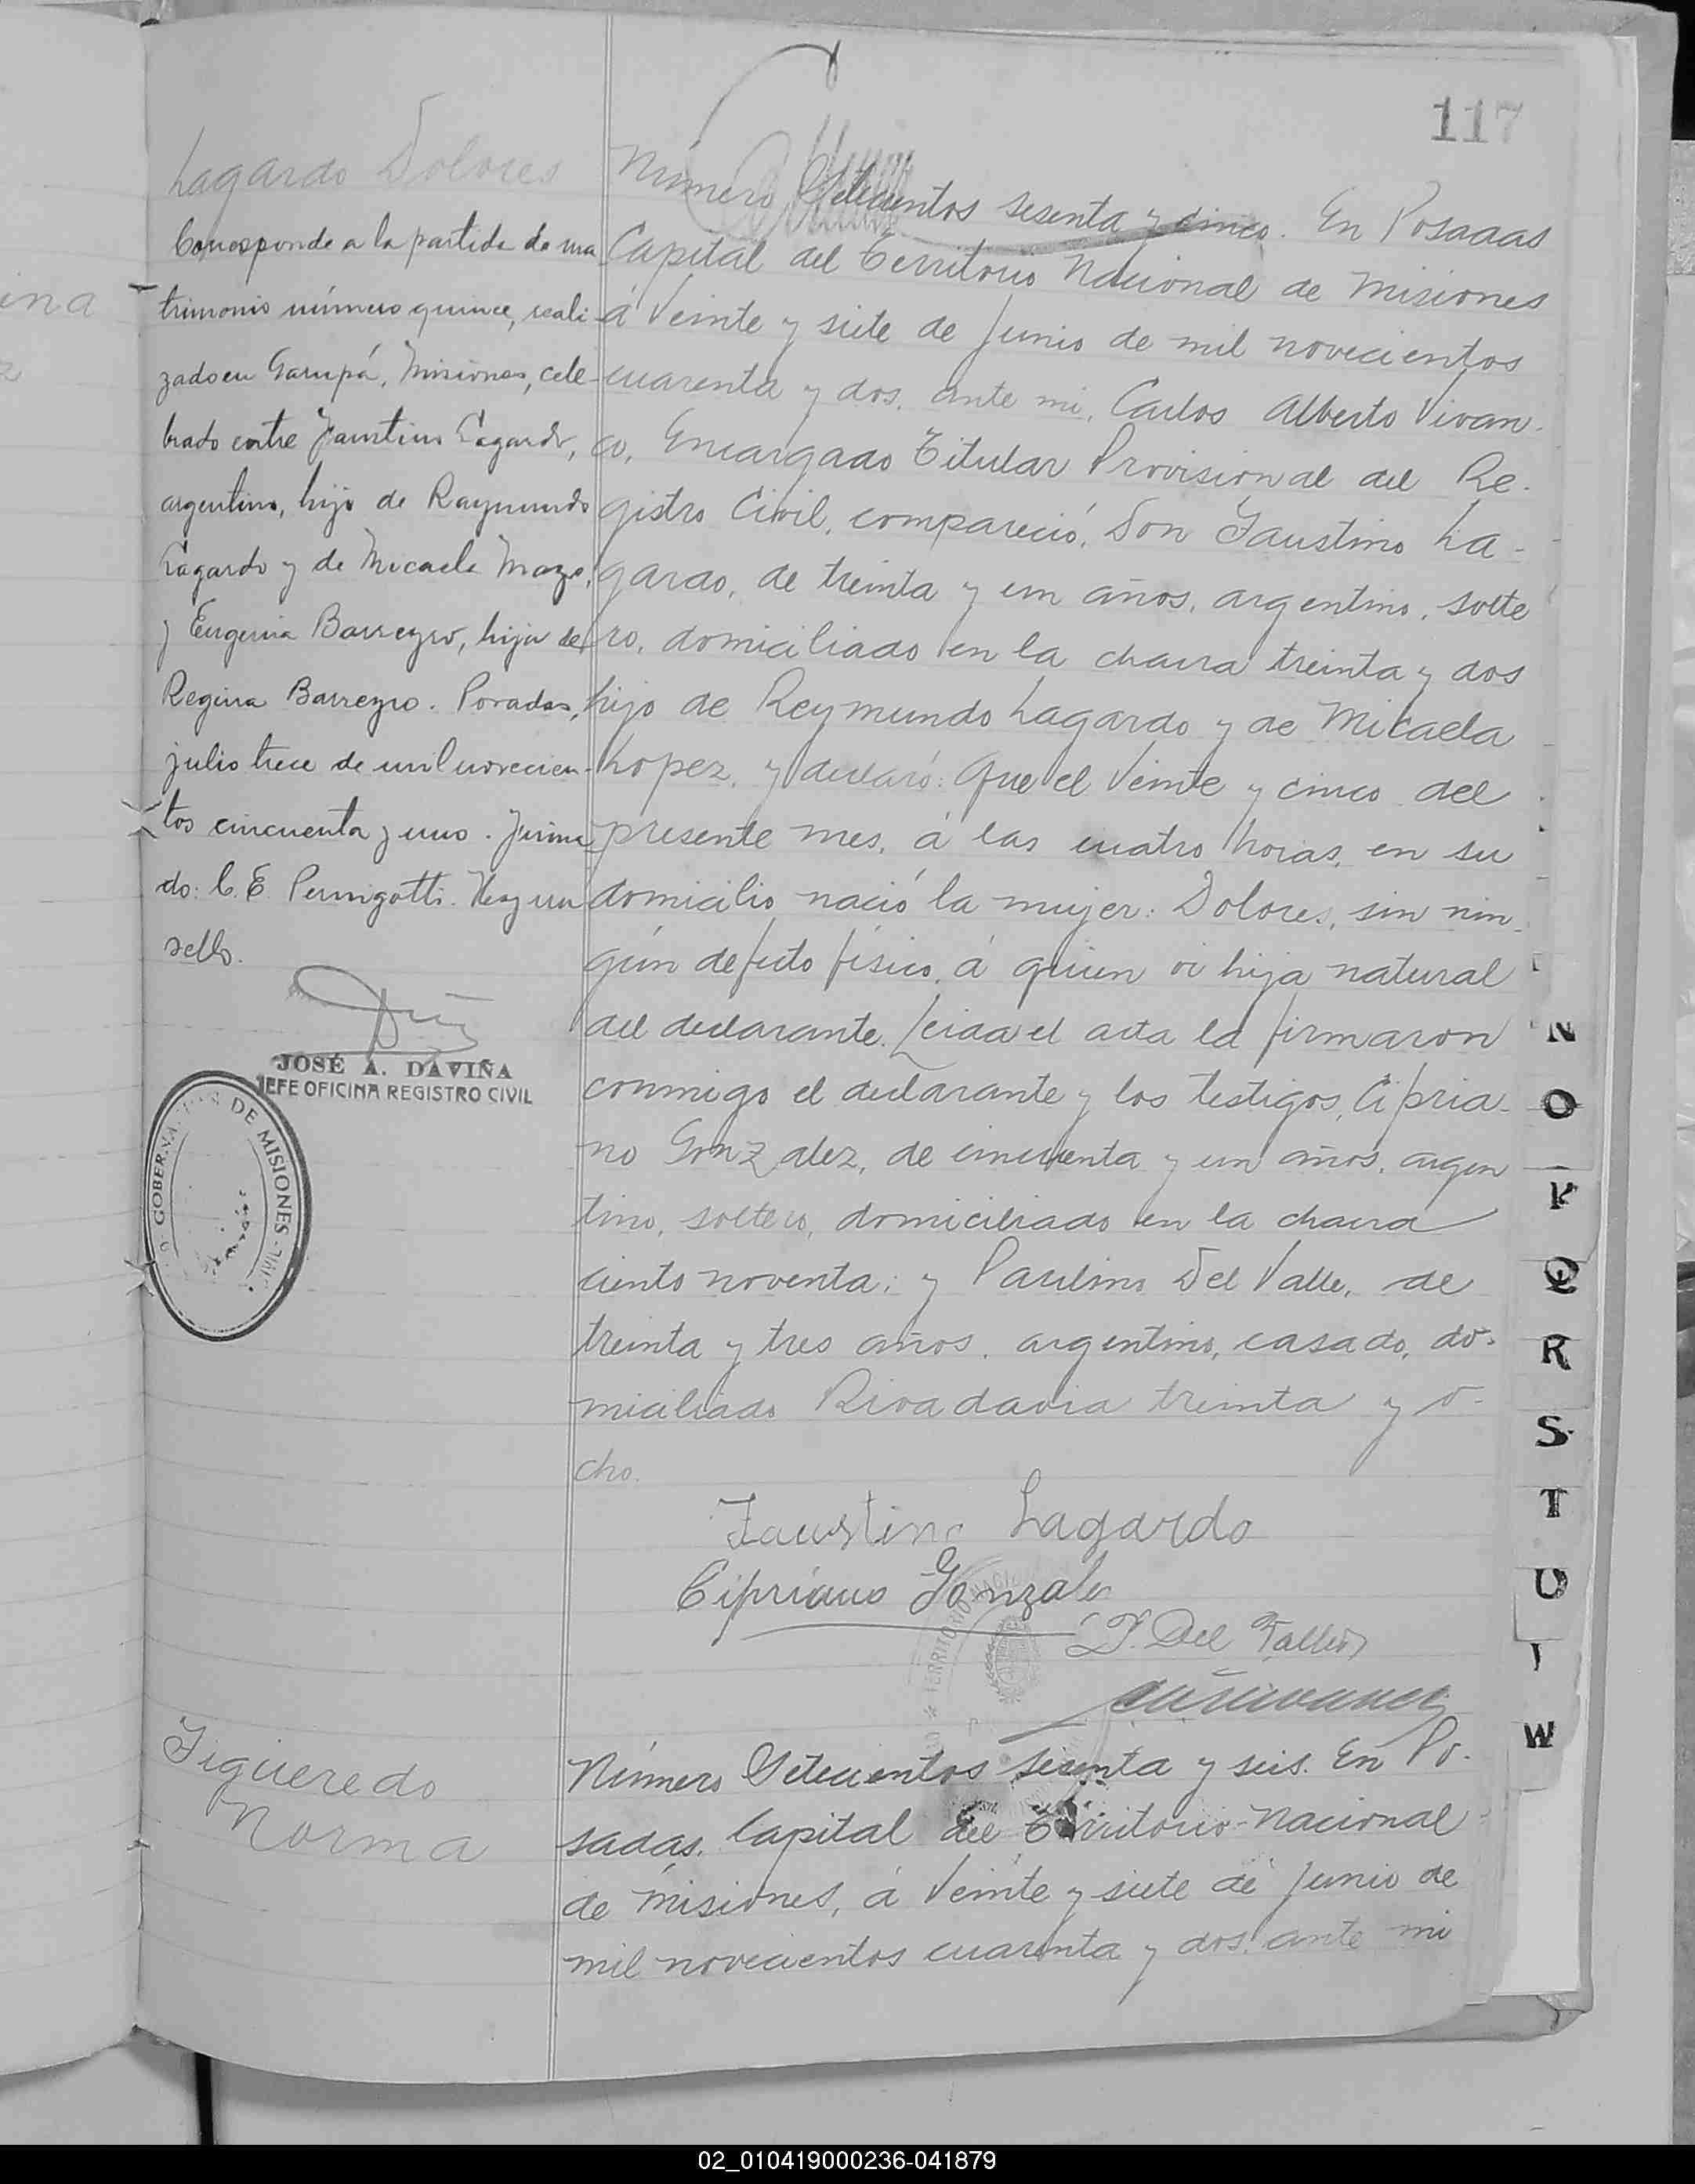 117
Lagardo Dolores
Corresponde a la partida de ma
trimonio número quince, reali
zado en Garupá, Misiones, cele-
brado entre Faustino Lagardo,
argentino, hijo de Raymundo
Lagardo y de Micaela
y Eugenia Barreyro, hija de
Regina Barreyro. Posadas,
julio trece de mil novecien-
tos cincuenta y uno. Firma
do: C. E. Pernigotti. Hay un
sello.
JOSÉ A. DAVIÑA
JEFE OFICINA REGISTRO CIVIL
GOBERNA DE MISIONES
Número Setecientos sesenta y cinco. En Posadas
Capital del Territorio Nacional de Misiones
á Veinte y siete de Junio de mil novecientos
cuarenta y dos, ante mi, Carlos Alberto Vivan-
co, Encargado Titular Provisional del Re-
gistro Civil, compareció, Don Faustino La-
gardo, de treinta y un años, argentino, solte
ro, domiciliado en la chacra treinta y dos
hijo de Reymundo Lagardo y de Micaela
Lopez, y declaró: Que el Veinte y cinco del
presente mes, á las cuatro horas, en su
domicilio nació la mujer: Dolores, sin nin-
gún defecto físico, á quien vi hija natural
del declarante. Leida el acta la firmaron
conmigo el declarante y los testigos, Cipria-
no Gonzalez, de cincuenta y un años, argen
tino, soltero, domiciliado en la chacra
ciento noventa; y Paulino Del Valle, de
treinta y tres años, argentino, casado, do-
miciliado Rivadavia treinta y o-
cho.
Faustino Lagardo
Cipriano Gonzalez
P. Del Valle
TERRITORIO NACI
Figueredo
Norma
Número Setecientos sesenta y seis. En Po-
sadas, Capital del Territorio Nacional
de Misiones, á Veinte y siete de Junio de
mil novecientos cuarenta y dos, ante mi
ina
N
O
P
Q
R
S
T
U
W
02_010419000236-041879